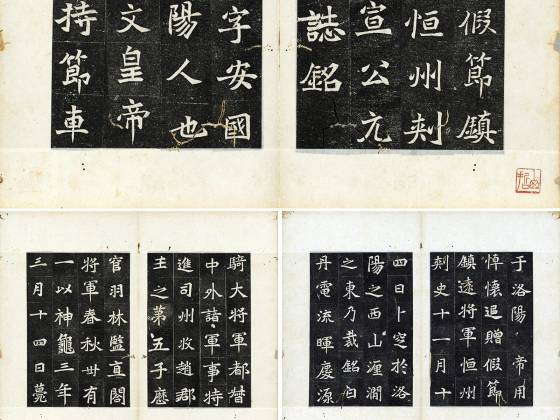 假節鎮
恒州刾
宣公元
誌銘
字安國
陽人也
文皇帝
持節車
騎大將軍都督
中外諸軍事特
進司州牧趙郡
王之第五子歷
官羽林監直閤
將軍春秋卅有
一以神龜三年
三月十四日薨
于洛陽帝用
悼懷追贈假節
鎮遠將軍恒州
刾史十一月十
四日卜窆於洛
陽之西山瀍澗
之東乃裁銘曰
丹電流暉慶源